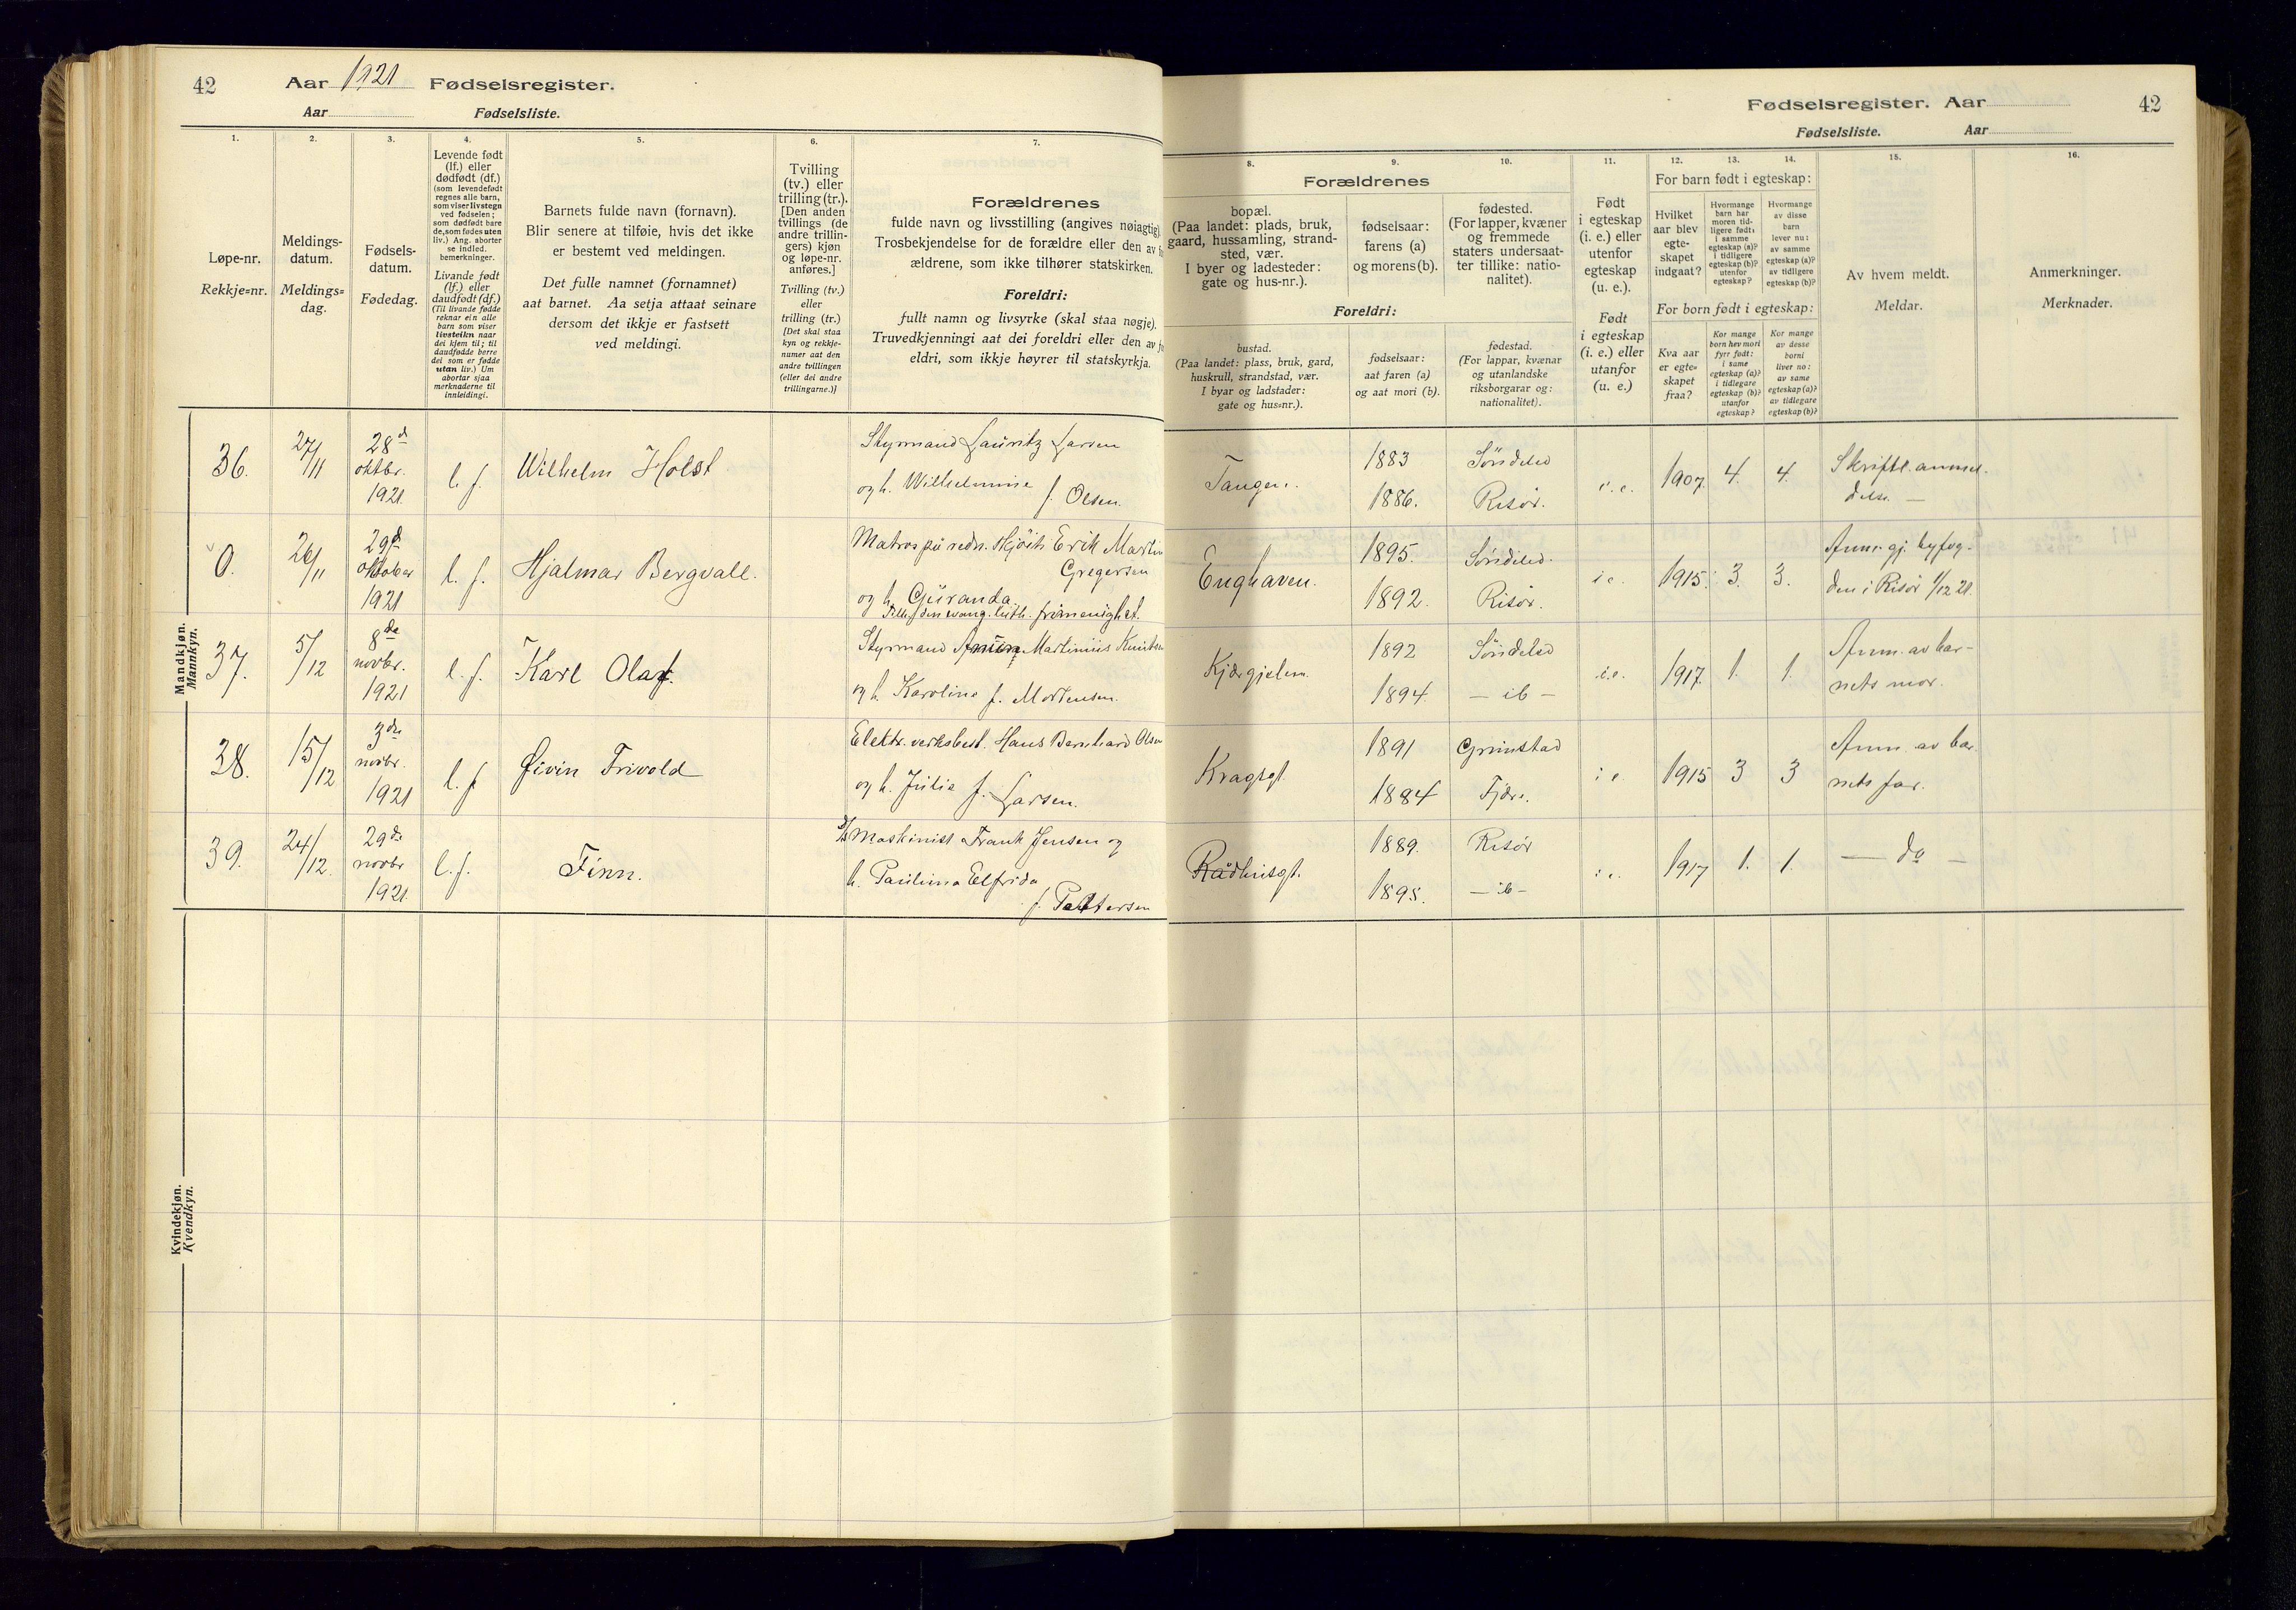 42
Aar 1921 Fødselsregister.
Aar Fødselsliste.
1.
2.
3.
4.
5.
6.
7.
Løpe-nr.
Rekkje=nr.
Meldings-
datum.
Meldings=
dag.
Fødsels-
datum.
Fødedag.
Levende født
(lf.) eller
dødfødt (df.)
(som levendefødt
regnes alle barn,
som viser livstegn
ved fødselen;
som dødfødt bare
de, som fødes uten
liv.) Ang. aborter
se indled.
bemerkninger.
Livande født
(lf.) eller
daudfødt (df.)
(Til livande fødde
reknar ein alle
barn som viser
livsteikn naar
dei kjem til; til
daudfødde berre
dei som er fødde
utan liv.) Um
abortar sjaa
merknaderne til
innleidingi.
Barnets fulde navn (fornavn).
Blir senere at tilføie, hvis det ikke
er bestemt ved meldingen.
Det fulle namnet (fornamnet)
aat barnet. Aa setja attaat seinare
dersom det ikkje er fastsett
ved meldingi.
Tvilling
(tv.) eller
trilling (tr.).
[Den anden
tvillings (de
andre trillin-
gers) kjøn
og løpe-nr.
anføres.]
Tvilling (tv.)
eller
trilling (tr.)
[Det skal staa
kyn og rekkje-
numer aat den
andre tvillingen
(eller dei andre
trillingarne.)]
Forældrenes
fulde navn og livsstilling (angives nøiagtig)
Trosbekjendelse for de forældre eller den av
ældrene, som ikke tilhører statskirken.
Foreldri:
fullt namn og livsyrke (skal staa nøgje).
Truvedkjenningi aat dei foreldri eller den av
eldri, som ikkje høyrer til statskyrkja.
Mandkjøn.
Mannkyn.
36.
27/11
28 d
oktbr.
1921
l. f.
Wilhelm Holst
Styrmand Lauritz Larsen
og h. Wilhelmine
f. Olsen.
0.
26/11
29 d
oktober
1921
l. f.
Hjalmar Bergvall.
Matros på redn. skjöit Erik Martin
Gregersen
og h. Guranda.
den evang. luth. frimenighet.
37.
5/12
8 de
novbr.
1921
l. f.
Karl Olaf.
Styrmand Martinius
og h. Karoline f. Mortensen.
38.
15/12
3 die
novbr.
1921
l. f
Øivin Trivold
Elektr. verksbest. Hans Bernhard Olsen
og h. Julie f. Larsen.
39.
24/12.
29 de
novbr
1921
l. f.
Finn.
Maskinist Frank Jensen og
h. Paulina Elfrida
f.
Kvindekjøn.
Kvendkyn.
Fødselsregister. Aar
42
Fødselsliste. Aar
8.
9.
10.
11.
12.
13.
14.
15.
16.
Forældrenes
bopæl.
(Paa landet: plads, bruk,
gaard, hussamling, strand-
sted, vær.
I byer og ladesteder:
gate og hus-nr.).
fødselsaar:
farens (a)
og morens (b).
fødested.
(For lapper, kvæner
og fremmede
staters undersaat-
ter tillike: natio-
nalitet).
Foreldri:
bustad.
(Paa landet: plass, bruk, gard,
huskrull, strandstad, vær.
I byar og ladstader:
gate og hus=nr.).
fødselsaar:
aat faren (a)
og aat mori (b).
fødestad.
(For lappar, kvænar
og utanlandske
riksborgarar og:
nationalitet).
Født
i egteskap
(i. e.) eller
utenfor
egteskap
(u. e.).
Født
i egteskap
(i. e.) eller
utanfor
(u. e.)
For barn født i egteskap:
Hvilket
aar blev
egte-
skapet
indgaat?
Hvormange
barn har
moren tid-
ligere født:
i samme
egteskap (a)?
i tidligere
egteskap (b)?
utenfor
egteskap?
Hvormange
av disse
barn
lever nu:
av samme
egteskap (a)?
av tidligere
egteskap (b)?
For born født i egteskap:
Kva aar
er egte=
skapet
fraa?
Kor mange
born hev mori
fyrr født:
i same
egteskap (a)?
i tidlegare
egteskap (b)?
utanfor
egteskap?
Kor mange
av desse
borni
liver no:
av same
egteskap (a)?
av tidlegare
egteskap (b)?
Av hvem meldt.
Meldar.
Anmerkninger.
Merknader.
Tangen.
1883
1886.
Söndeled
Risör.
i. e.
1907
4.
4.
Skriftl. anmel-
delse. —
Enghaven.
1895.
1892.
Söndeled.
Risör.
i e.
1915.
3.
3.
Anm. gj. byfog-
den i Risör 1/12 21.
1892
1894
Söndeled
— ib —
i.e.
1917.
1.
1.
Anm. av bar-
nets mor.
Kragsgt.
1891
1884
Grimstad
Fjære.
i e
1915
3
3
Anm. av bar-
nets far.
Rådhusgt.
1889.
1895.
Risör
— ib —
i e.
1917
1.
1.
— do —